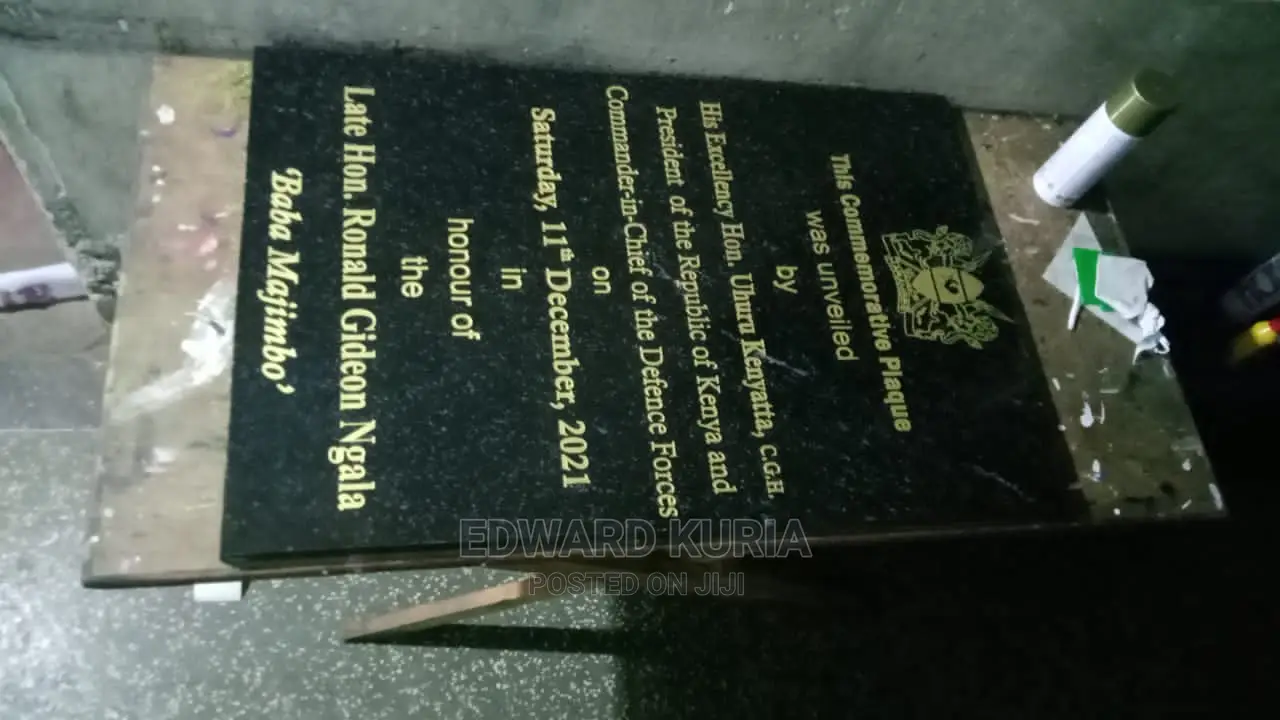 This Commemorative Plaque
was unveiled
by
His Excellency Hon. Uhuru Kenyatta, C.G.H.
President of the Republic of Kenya and
Commander-in-Chief of the Defence Forces
on
Saturday, 11th December, 2021
in
honour of
the
Late Hon. Ronald Gideon Ngala
'Baba Majimbo'
EDWARD KURIA
POSTED ON JIJI